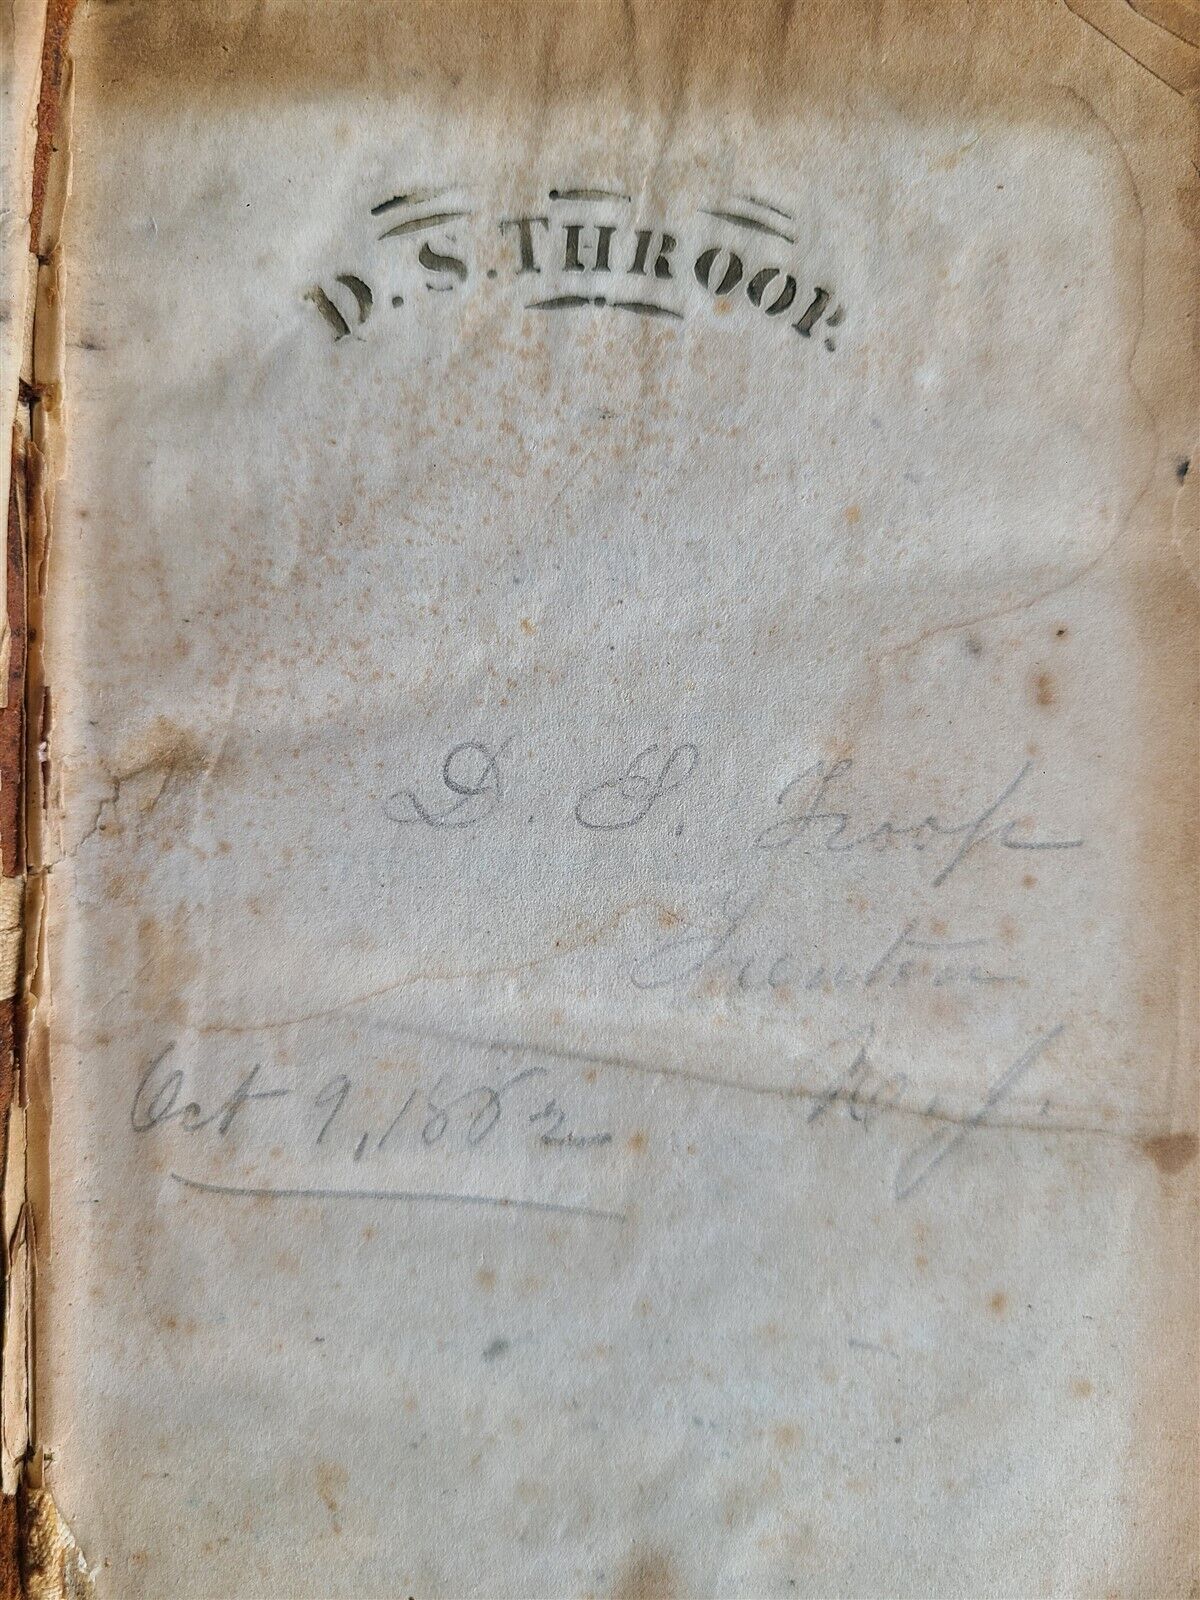 D. S. THROOP.
D. S. Troop
Trenton
N. J.
Oct 9, 1882